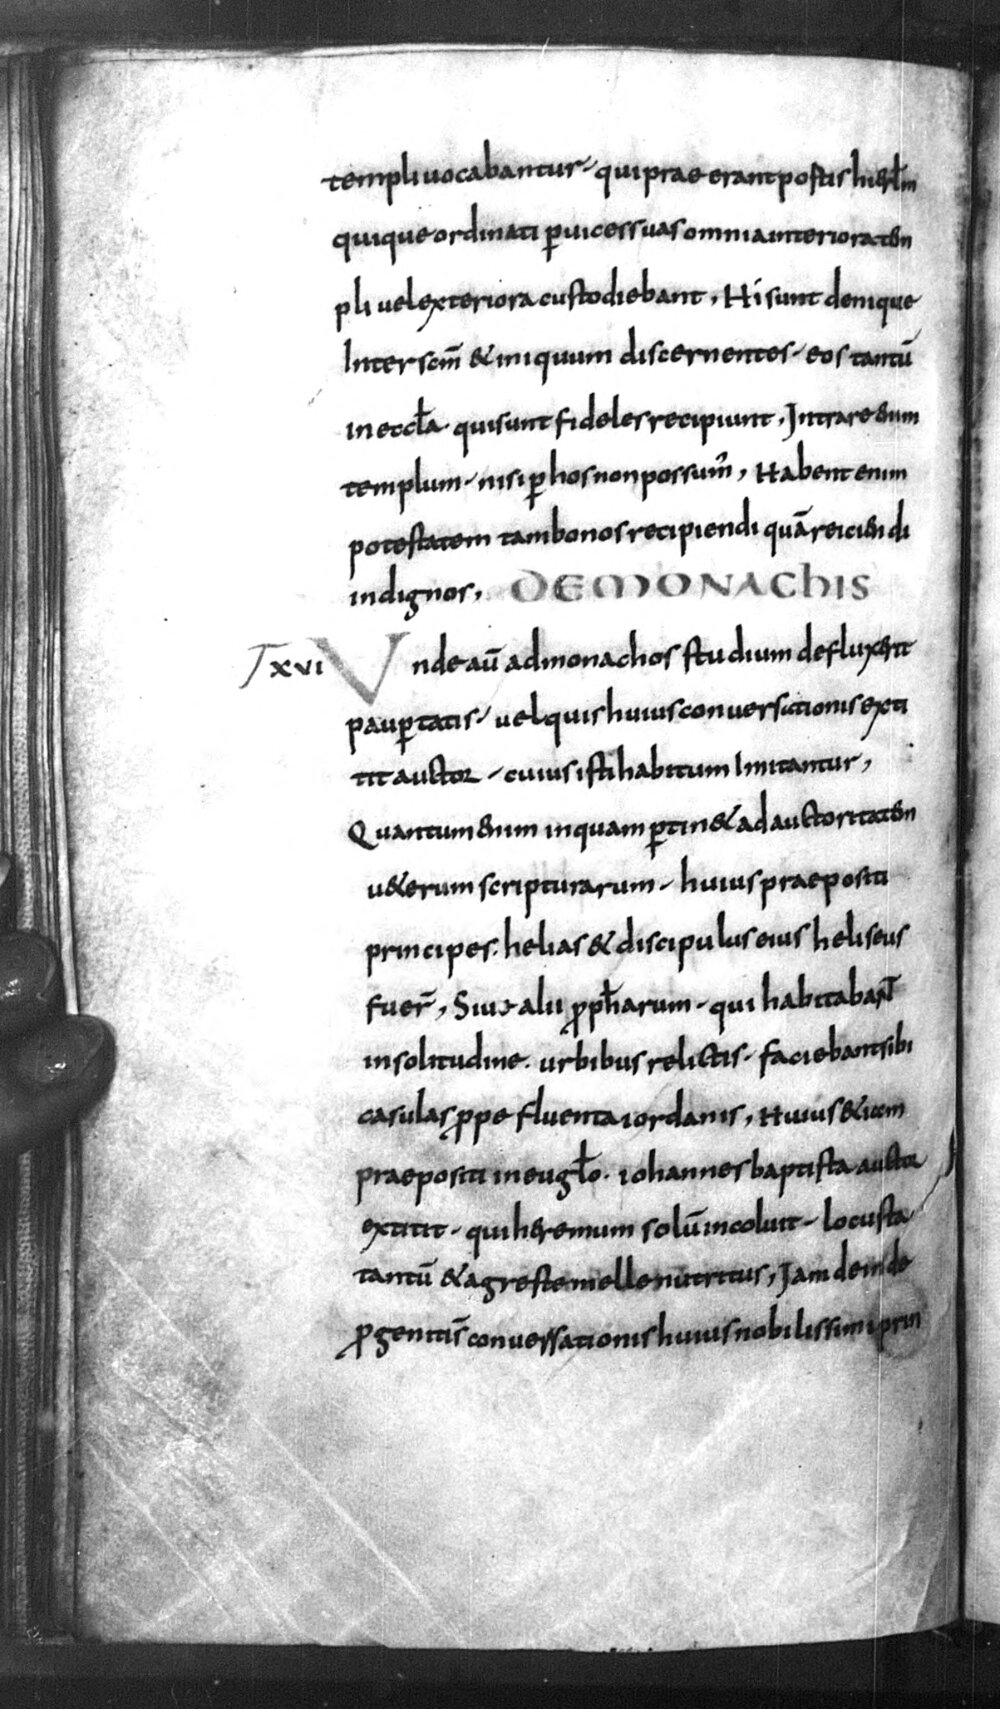 templi uocabantur qui prae erant portis hierłm
quique ordinati ꝑ uices suas omnia interiora tem
pli uel exteriora custodiebant, Hi sunt denique
Inter scm̄ & iniquum discernentes eos tantū
in eccła. qui sunt fideles recipiunt, Intrare enim
templum nisi ꝑ hos non possum᾽, Habent enim
potestatem tam bonos recipiendi quā reiciendi
indignos, DE MONACHIS
XVI Vnde aū ad monachos studium defluxerit
pauꝑtatis uel quis huius conuersationis exti
tit auctor cuius isti habitum Imitantur,
Quantum enim inquam ꝑtin& ad auctoritatem
u&erum scripturarum huius praepositi
principes. helias & discipulus eius heliseus
fuer̄, Siue alii ꝓph̄arum qui habitabant
in solitudine. urbibus relictis faciebant sibi
casulas ꝓpe fluenta iordanis, Huius &iam
praepositi in eugło. iohannes baptista auctor
extitit qui heremum solū incoluit locusta
tantū & agreste melle nutritus, Iam deinde
ꝓgenitis̄ conuersationis huius nobilissimi prin